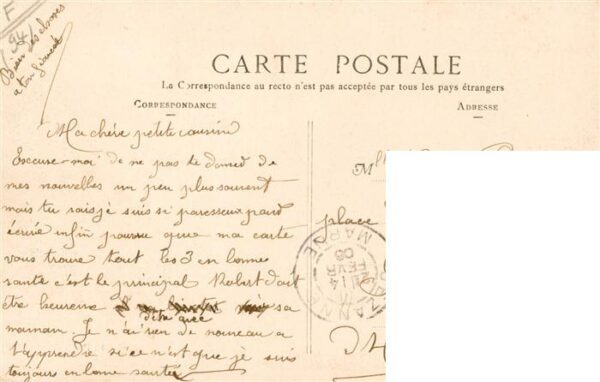 F
94
Bien des choses
a ton fiancé
CARTE POSTALE
La Correspondance au recto n'est pas acceptée par tous les pays étrangers
CORRESPONDANCE
ADRESSE
Ma chère petite cousine
Excuse-moi de ne pas te donner de
mes nouvelles un peu plus souvent
mais tu sais je suis si paresseux pour
écrire enfin pourvu que ma carte
vous trouve tout les 3 en bonne
santé c'est le principal Robert doit
être heureux sa
d'être avec
maman. Je n'ai rien de nouveau a
t'apprendre si ce n'est que je suis
toujours en bonne santé
M
place
MARNE
14
FEVR
08